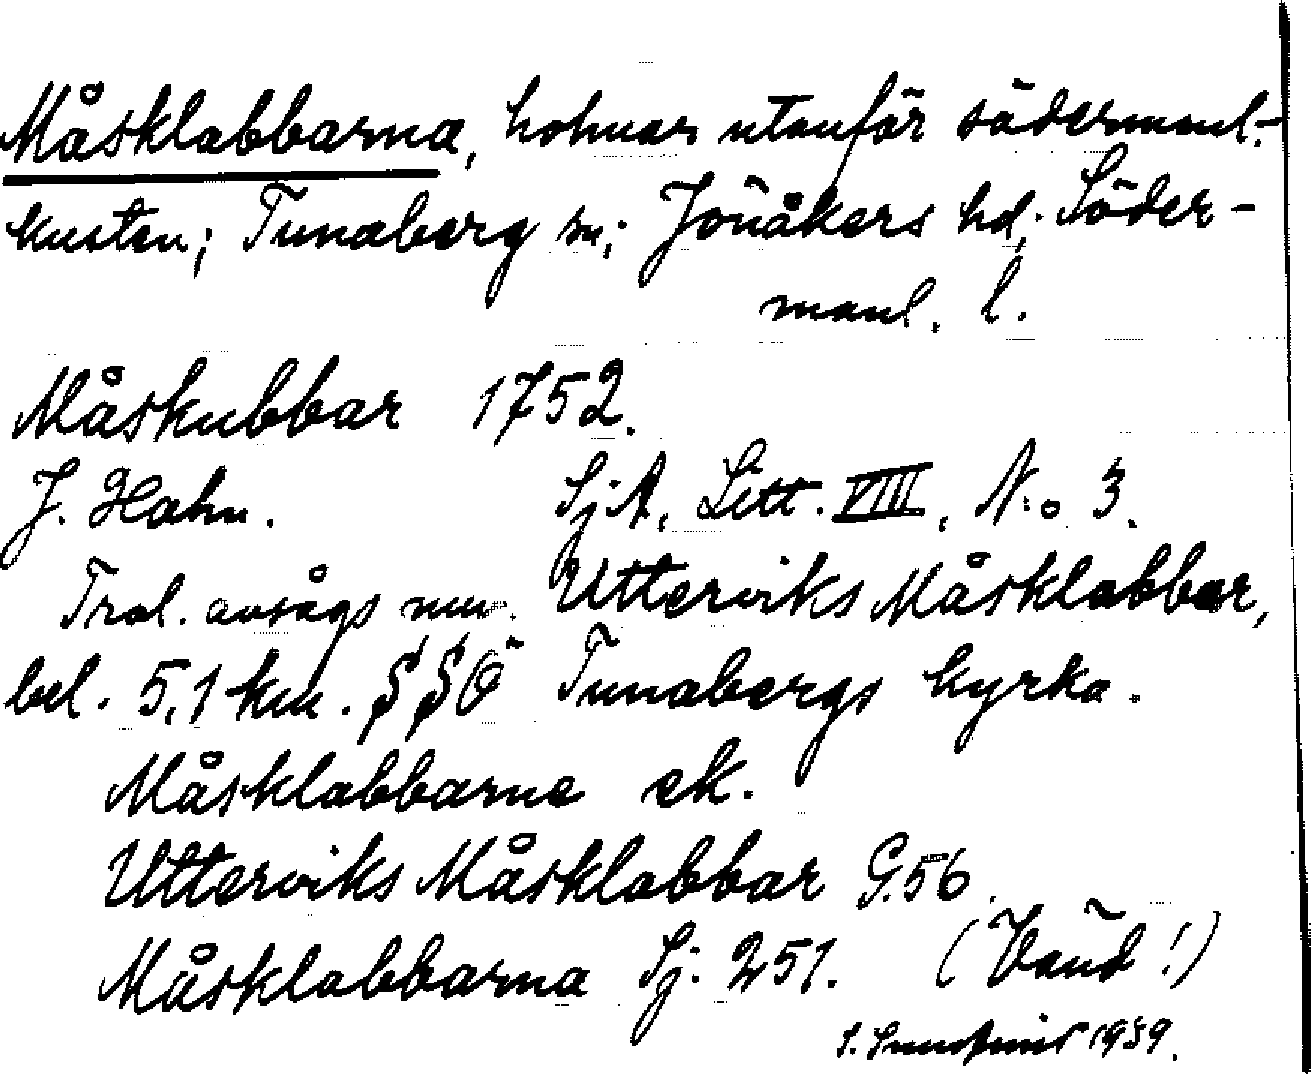 Måsklabbarna, holmar utanför södermanl.-
kusten; Tunaberg sn; Jönåkers hd, Söder-
manl. l.
Måskubbar 1752.
J. Hahn. SjA, Litt. VIII, No 3.
Trol. avsågs nuv. Utterviks Måsklabbar,
bel. 5,1 km. SSÖ Tunabergs kyrka.
Måsklabbarne ek.
Utterviks Måsklabbar G.56.
Måsklabbarna Sj. 251. (Vänd!)
S. 1959.